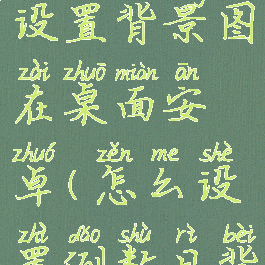 设置背景图
zài zhuō miàn ān
在桌面安
zhuó zěn me shè
卓(怎么设
zhì dào shù rì bèi
置倒数日背